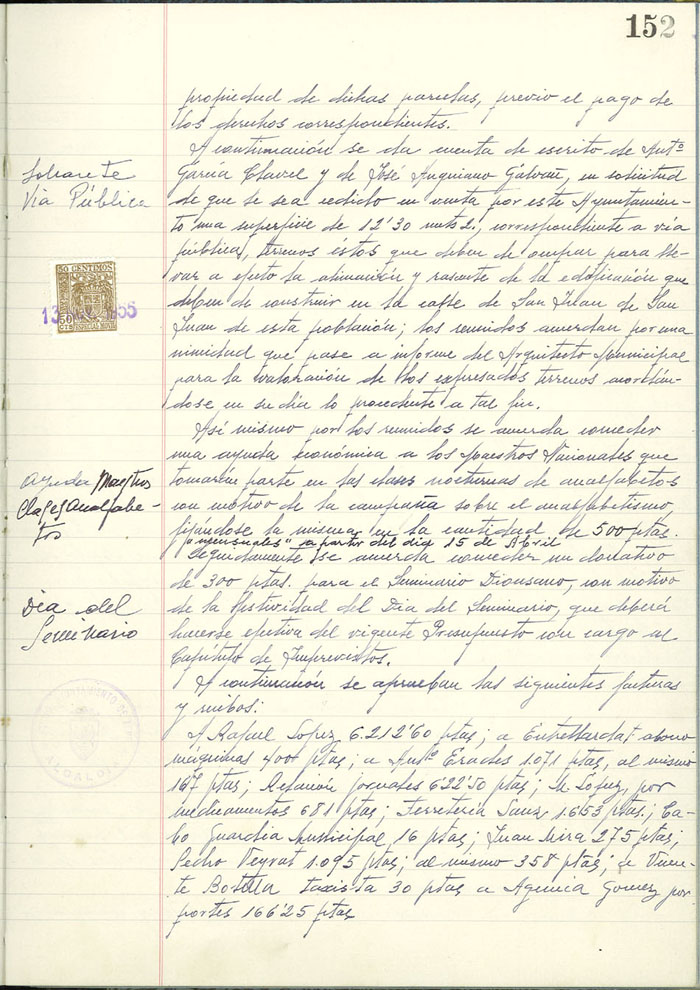 152
propiedad de dichas parcelas, previo el pago de
los derechos correspondientes.
A continuación se da cuenta de escrito de Antº
García Clavel y de José Anguiano Galvañ, en solicitud
de que se sea cedido en venta por este Ayuntamien-
to una superficie de 12'30 mts 2., correspondiente a via
pública, terrenos éstos que deben de ocupar para lle-
var a efecto la alineación y rasante de la edificación que
deben de construir en la calle de San Juan de San
Juan de esta población; los reunidos acuerdan por una
nimidad que pase a informe del Arquitecto Municipal
para la valoración de los expresados terrenos acordán-
dose en su día lo procedente a tal fin.
Así mismo por los reunidos se acuerda conceder
una ayuda económica a los Maestros Nacionales que
tomarán parte en las clases nocturnas de analfabetos
con motivo de la campaña sobre el analfabetismo,
fijándose la misma en la cantidad de 500 ptas.
"mensuales" a partir del dia 15 de Abril
Seguidamente se acuerda conceder un donativo
de 300 ptas. para el Seminario Diocesano, con motivo
de la festividad del Dia del Seminario, que deberá
hacerse efectiva del vigente Presupuesto con cargo al
Capítulo de Imprevistos.
A continuación se aprueban las siguientes facturas
y recibos:
A Rafael Lopez 6.212'60 ptas; a abono
máquinas 400 ptas; a Antº 1.071 ptas, al mismo
167 ptas; jornales 622'50 ptas; M. Lopez, por
medicamentos 681 ptas; Ferretería Sanz 1.653 ptas.; Ca-
bo Guardia Municipal 16 ptas; Juan Mira 275 ptas;
Pedro Veyrat 1.095 ptas; al mismo 358 ptas; a Vicen-
te Botella taxista 30 ptas a Agencia Gomez por
portes 166'25 ptas
Sobrante
Via Pública
50 CENTIMOS
50 CTS ESPECIAL MOVIL
Ayuda Maestros
Clases Analfabe-
tos
Dia del
Seminario